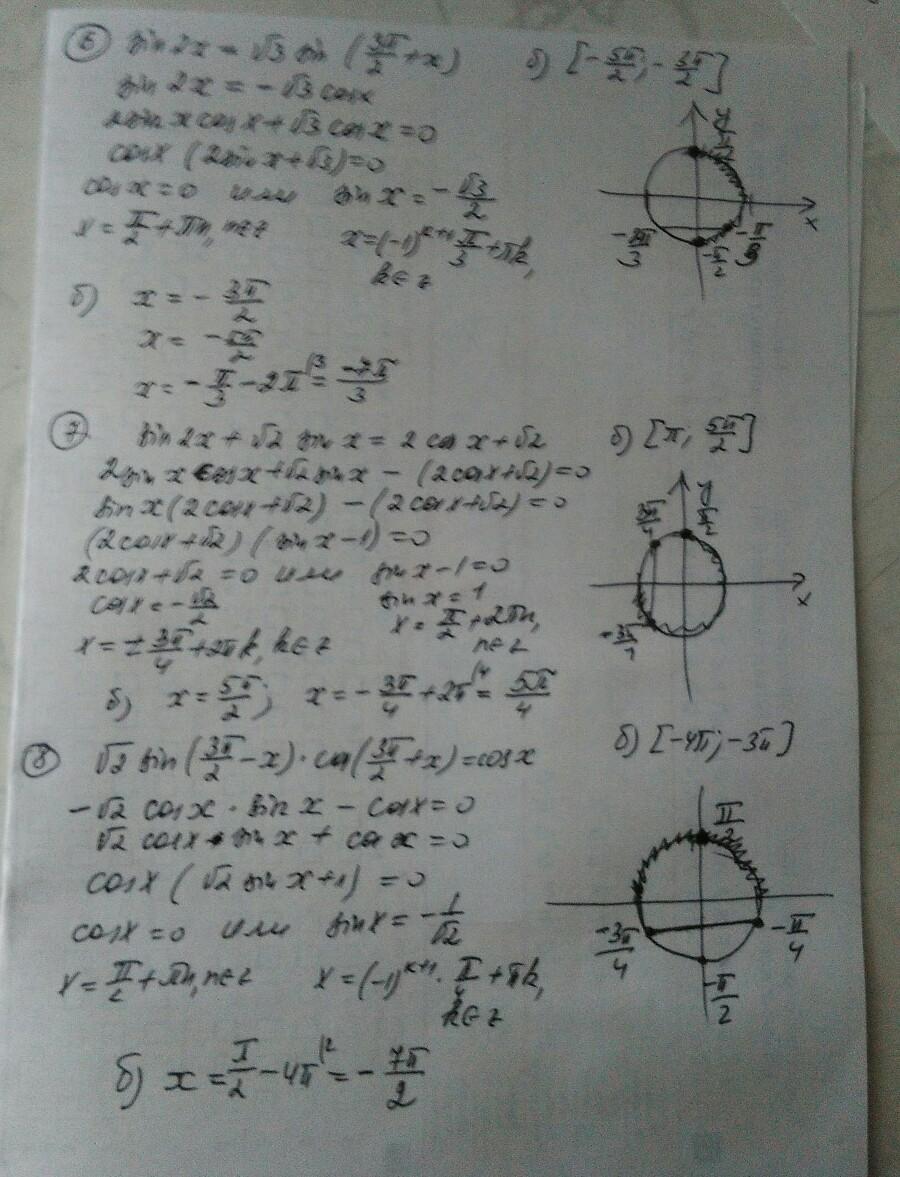 ⑥ sin 2x = √3 sin (3π/2 + x) б) [-5π/2; -3π/2]
sin 2x = -√3 cos x
2sin x cos x + √3 cos x = 0
cos x (2 sin x + √3) = 0
cos x = 0 или sin x = -√3/2
x = π/2 + πn, n∈z x = (-1)^(k+1) π/3 + πk,
k∈z
y
x
-2π/3 -π/2 -π/3
б) x = -3π/2
x = -5π/2
x = -π/3 - 2π^(|3) = -7π/3
⑦ sin 2x + √2 sin x = 2 cos x + √2 б) [π; 5π/2]
2sin x cos x + √2 sin x - (2cos x + √2) = 0
sin x (2cos x + √2) - (2cos x + √2) = 0
(2cos x + √2) (sin x - 1) = 0
2cos x + √2 = 0 или sin x - 1 = 0
cos x = -√2/2 sin x = 1
x = ±3π/4 + 2πk, k∈z x = π/2 + 2πn,
n∈z
y
π/2
3π/4
x
-3π/4
б) x = 5π/2; x = -3π/4 + 2π^(|4) = 5π/4
⑧ √2 sin (3π/2 - x) · cos (3π/2 + x) = cos x б) [-4π; -3π]
-√2 cos x · sin x - cos x = 0
√2 cos x · sin x + cos x = 0
cos x (√2 sin x + 1) = 0
cos x = 0 или sin x = -1/√2
x = π/2 + πn, n∈z x = (-1)^(k+1) · π/4 + πk,
k∈z
π/2
-3π/4 -π/4
-π/2
б) x = π/2 - 4π^(|2) = -7π/2